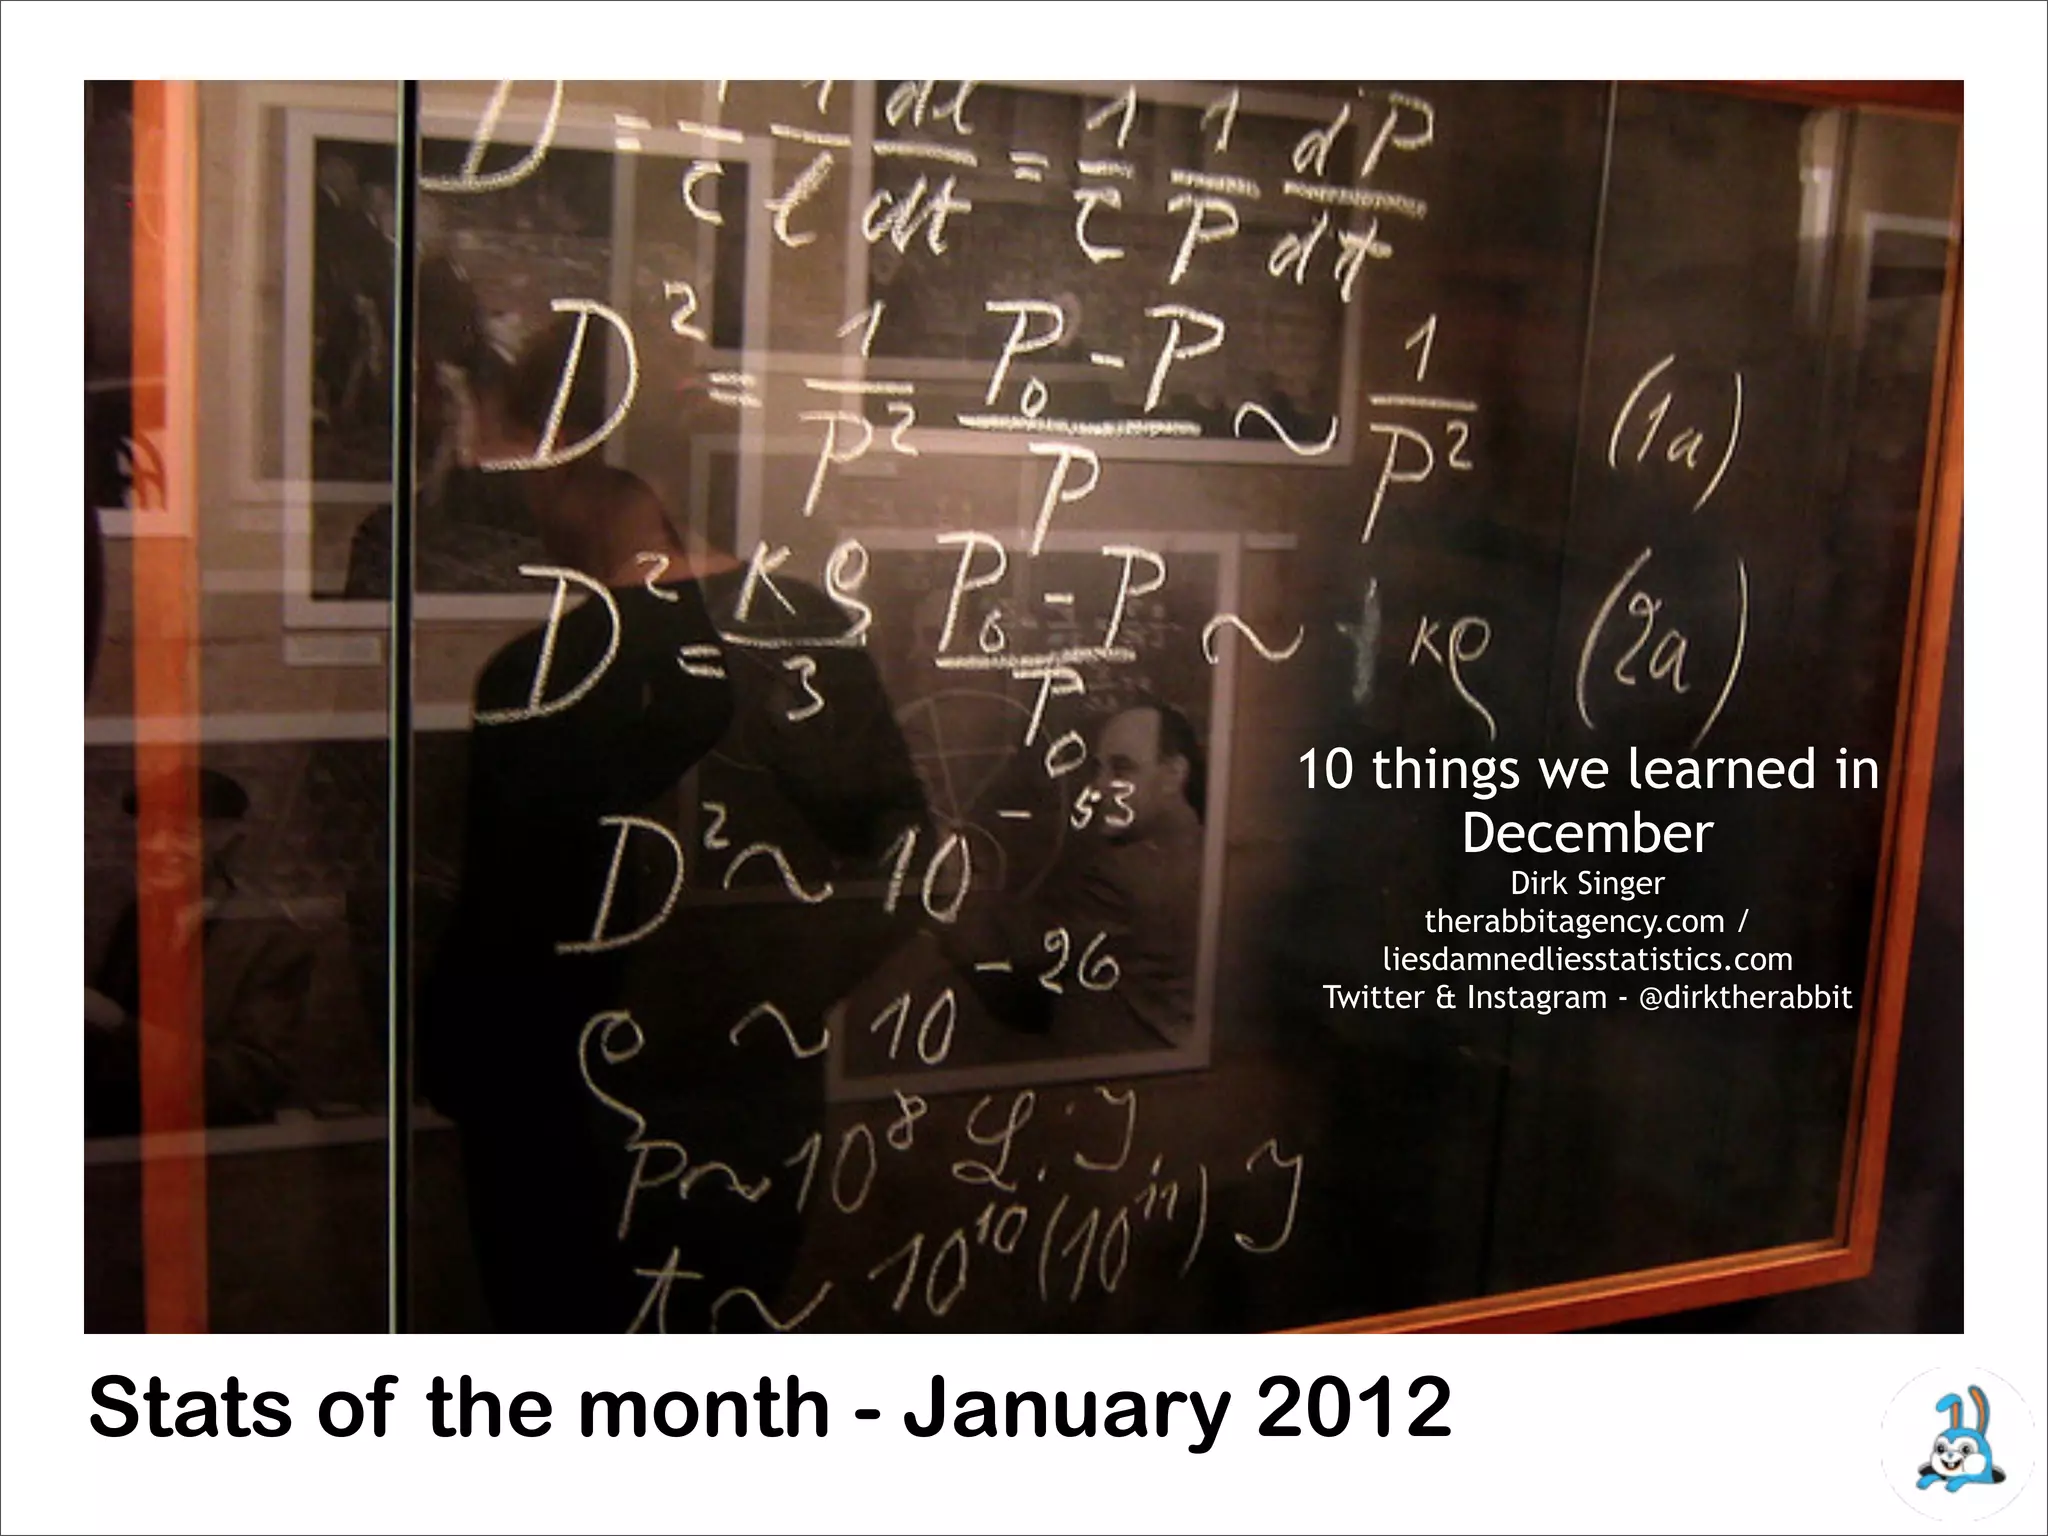 D = 1/c 1/l dl/dt = 1/c 1/P dP/dt
D² = 1/P² P₀-P/P ~ 1/P² (1a)
D² = κρ/3 P₀-P/P₀ ~ κρ (2a)
D² ~ 10⁻⁵³
ρ ~ 10⁻²⁶
P ~ 10⁸ L.J.
t ~ 10¹⁰(10¹¹) J
10 things we learned in
December
Dirk Singer
therabbitagency.com /
liesdamnedliesstatistics.com
Twitter & Instagram - @dirktherabbit
Stats of the month - January 2012